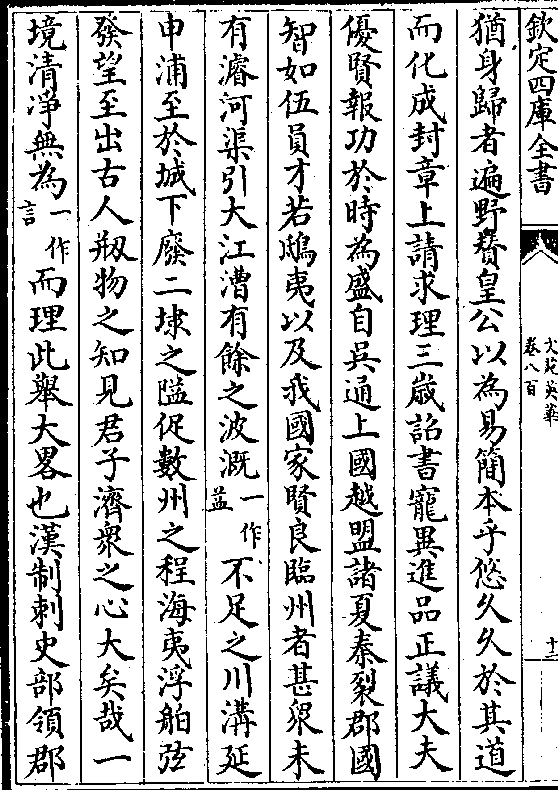 欽定四庫全書
文苑英華
卷八百
十二
猶身歸者遍野賛皇公以為易簡本乎悠久久於其道
而化成封章上請求理三歳詔書寵異進品正議大夫
優賢報功於時為盛自吳通上國越盟諸夏秦裂郡國
智如伍員才若鴟夷以及我國家賢良臨州者甚衆未
有濬河渠引大江漕有餘之波溉一作益不足之川溝延
申浦至於城下廢二埭之隘促數州之程海夷浮舶弦
發望至出古人剏物之知見君子濟衆之心大矣哉一
境清淨無為一作言而理此舉大畧也漢制刺史部領郡